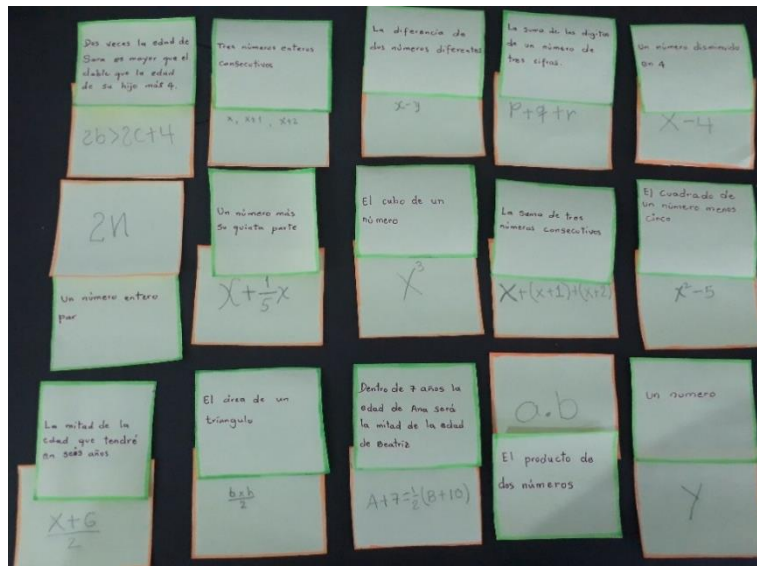 Dos veces la edad de
Sara es mayor que el
doble que la edad
de su hijo más 4.
2b>2c+4
Tres números enteros
consecutivos
x, x+1, x+2
La diferencia de
dos números diferentes
x-y
La suma de los digitos
de un número de
tres sifras.
P+q+r
Un número disminuido
en 4
X-4
2n
Un número entero
par
Un número más
su quinta parte
X+1/5x
El cubo de un
número
X³
La suma de tres
números consecutivos
X+(x+1)+(x+2)
El cuadrado de
un número menos
cinco
x²-5
La mitad de la
edad que tendré
en seis años
x+6
2
El área de un
triángulo
bxh
2
Dentro de 7 años la
edad de Ana será
la mitad de la edad
de Beatriz
A+7=1/2(B+10)
a.b
El producto de
dos números
Un numero
Y